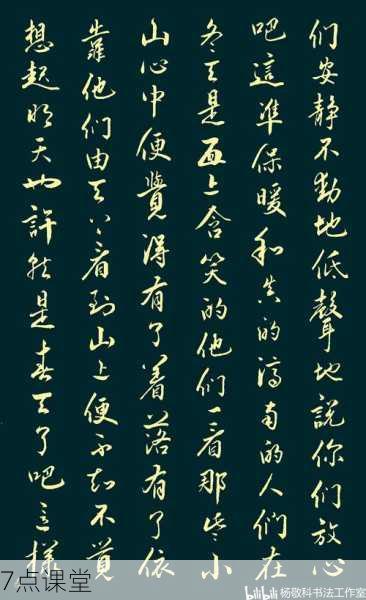 们安静不動地低聲地說你们放心
吧這準保暖和真的濟南的人们在
冬天是面上含笑的他们一看那些小
山心中便覺得有了着落有了依
靠他们由天上看到山上便不知不覺
想起明天也許就是春天了吧這樣
7点课堂
bilibili 杨敬科书法工作室